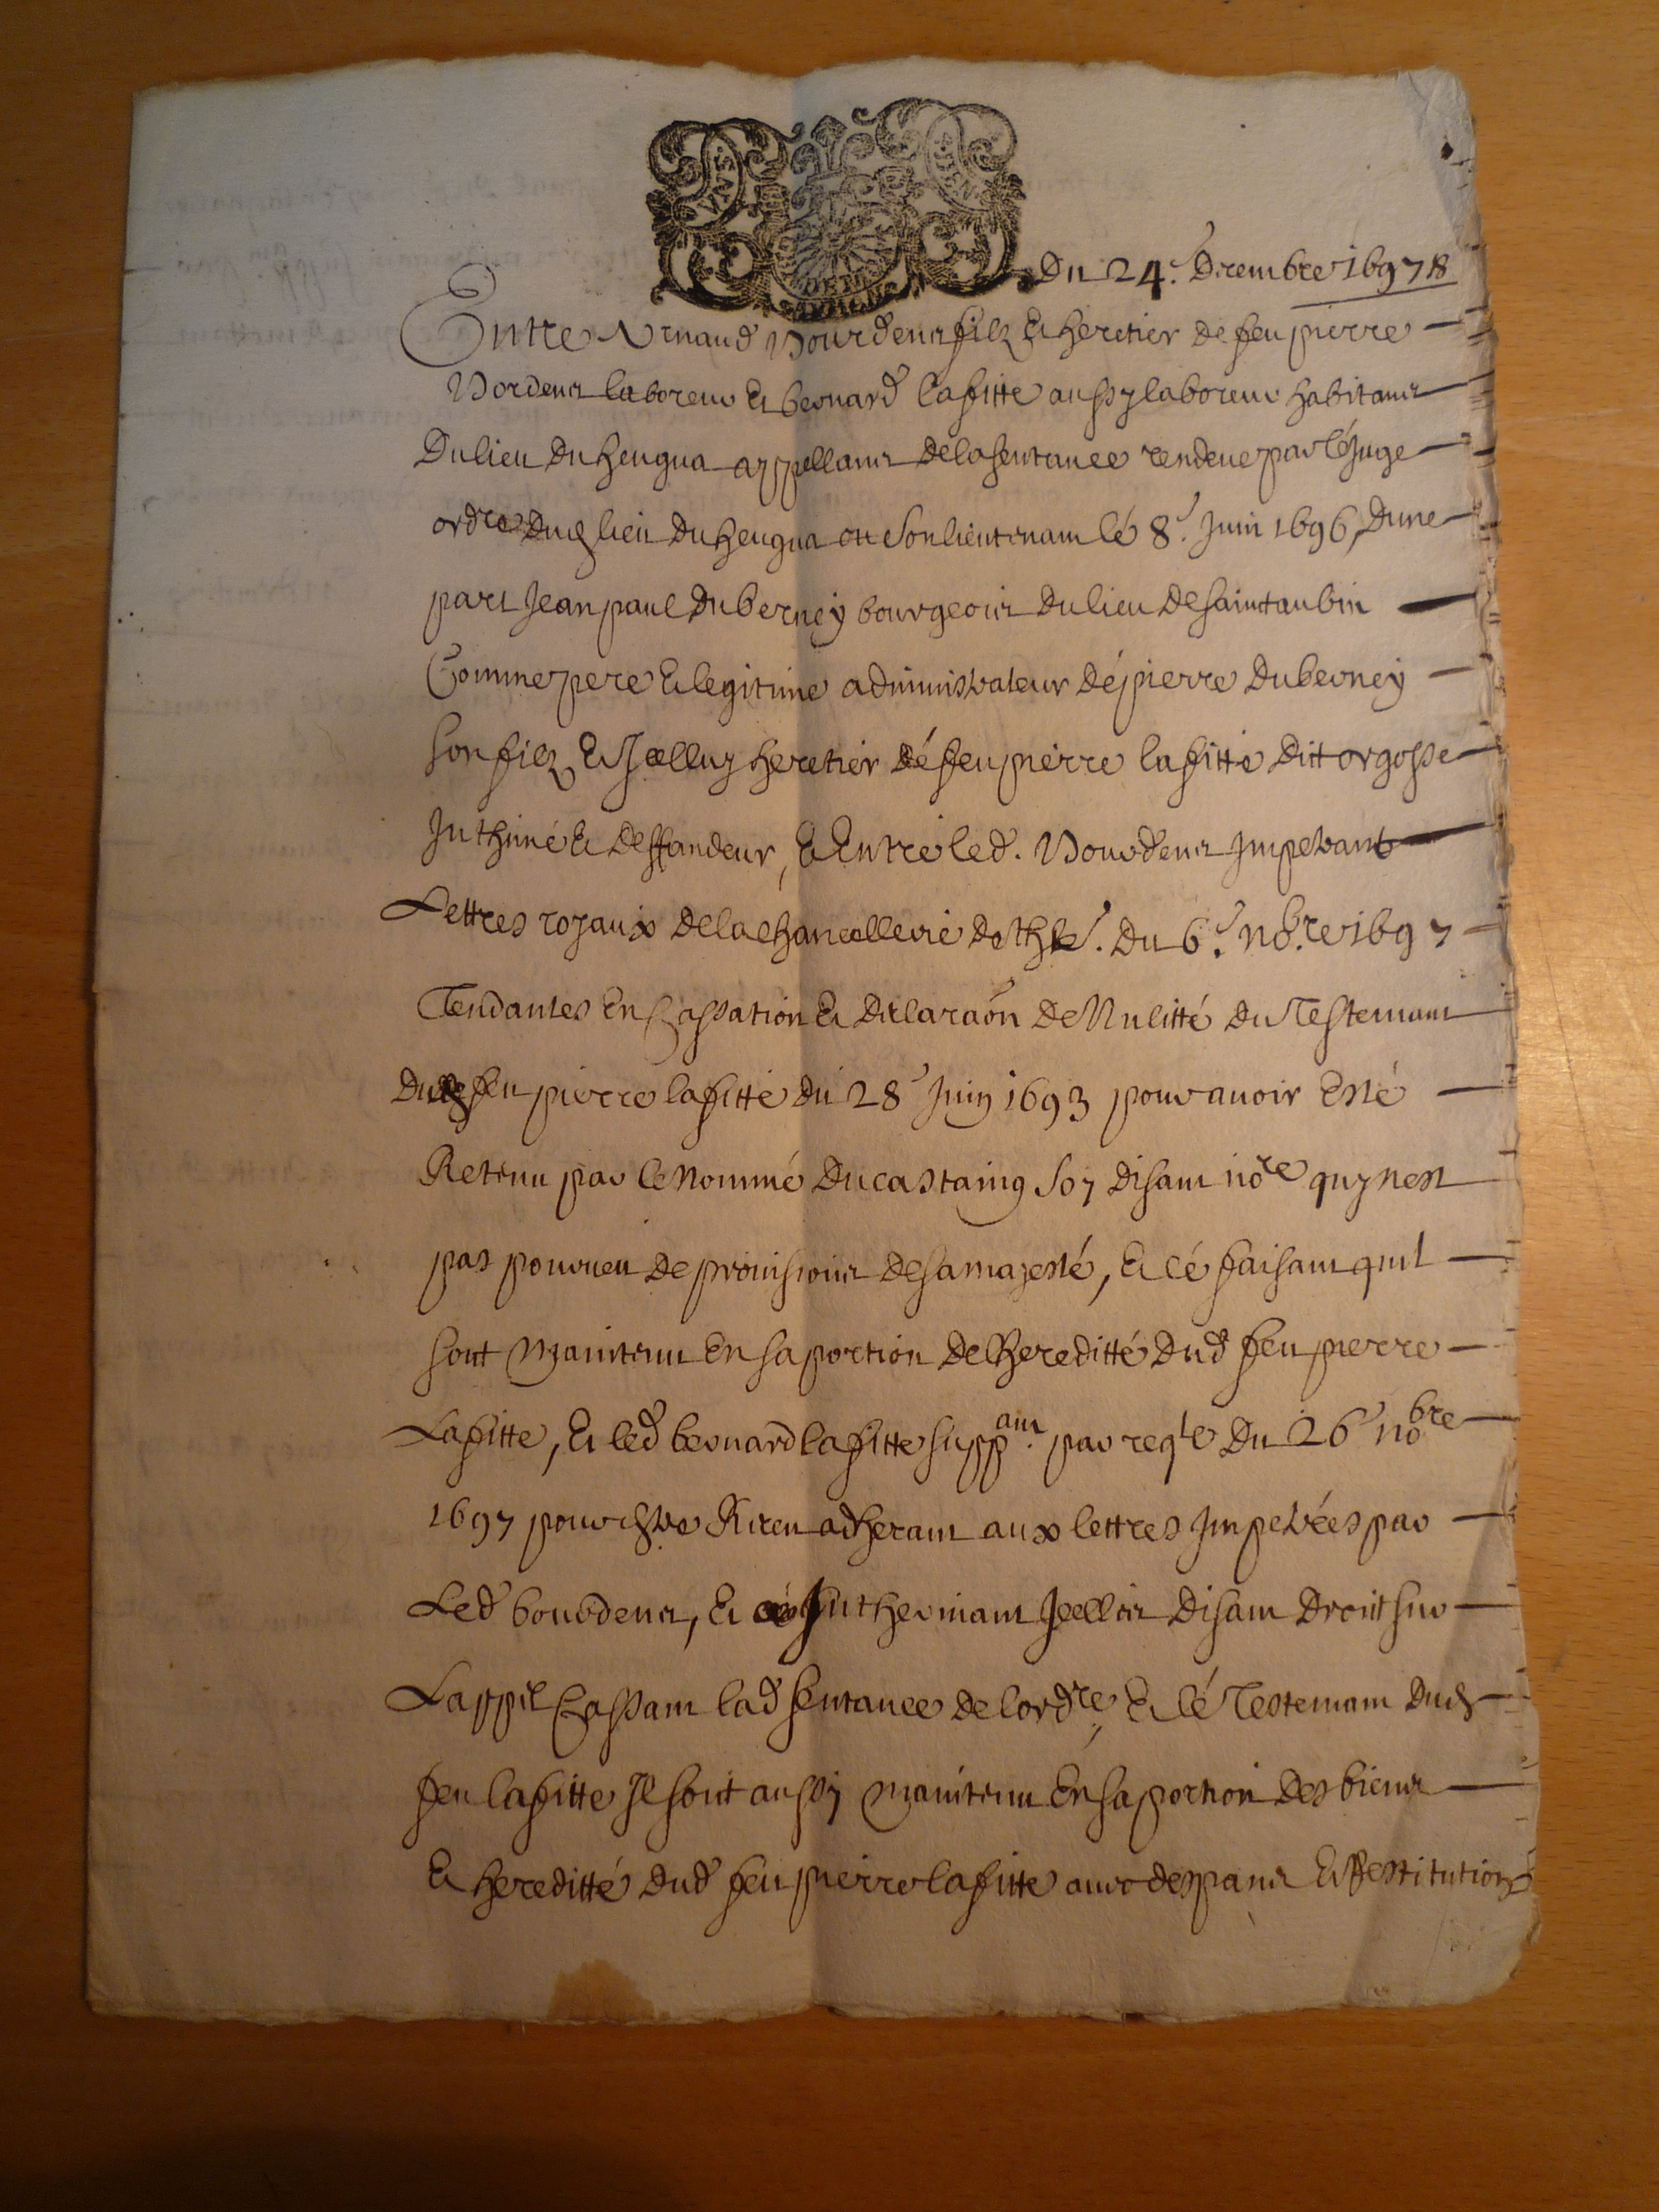 Du 24.e Decembre 1697 /8
Entre Arnaud Bourdens filz Et heretier de feu pierre
Bordens laboreur Et bernard lafitte aussy laboreur habitans
Du lieu Du heugua appellans de la sentance rendeue par lé Juge
ordre Dud lieu Du heugua ou son lieutenant lé 8.e Juin 1696, Dune
part Jean paul Duberney bourgeois Du lieu de saint aubin
Comme pere Et legitime administrateur dé pierre Duberney
son filz, Et Jcelluy heretier dé feu pierre lafitte Ditt orgosse
Jnthimé Et deffandeur, Et Entre led. Bourdens Jmpetrant
Lettres royaux de la chancellerie de thle. Du 6.e nobre 1697
Tendantes En Cassation Et declaraon de Nulitté Du Testemant
Dud feu pierre lafitte du 28e Juin 1693 pour avoir Esté
Retenu par le nommé Ducastaing soy disant nore quy nest
pas pourveu de provisions de sa majesté, Et cé faisant quil
soit Maintenu En sa portion de lhereditté Dud feu pierre
Lafitte, Et led bernard lafitte suppant. par reqte Du 26e nobre
1697 pour estre Receu adherant aux lettres Jmpetrées par
Led bourdens, Et Jntherinant Jcelles disant droit sur
Lappel Cassant lad sentance de lordre, Et lé Testemant dud
feu lafitte Jl soit aussy Maintenu En sa portion des biens
Et hereditté dud feu pierre lafitte avec despans Et Restitution